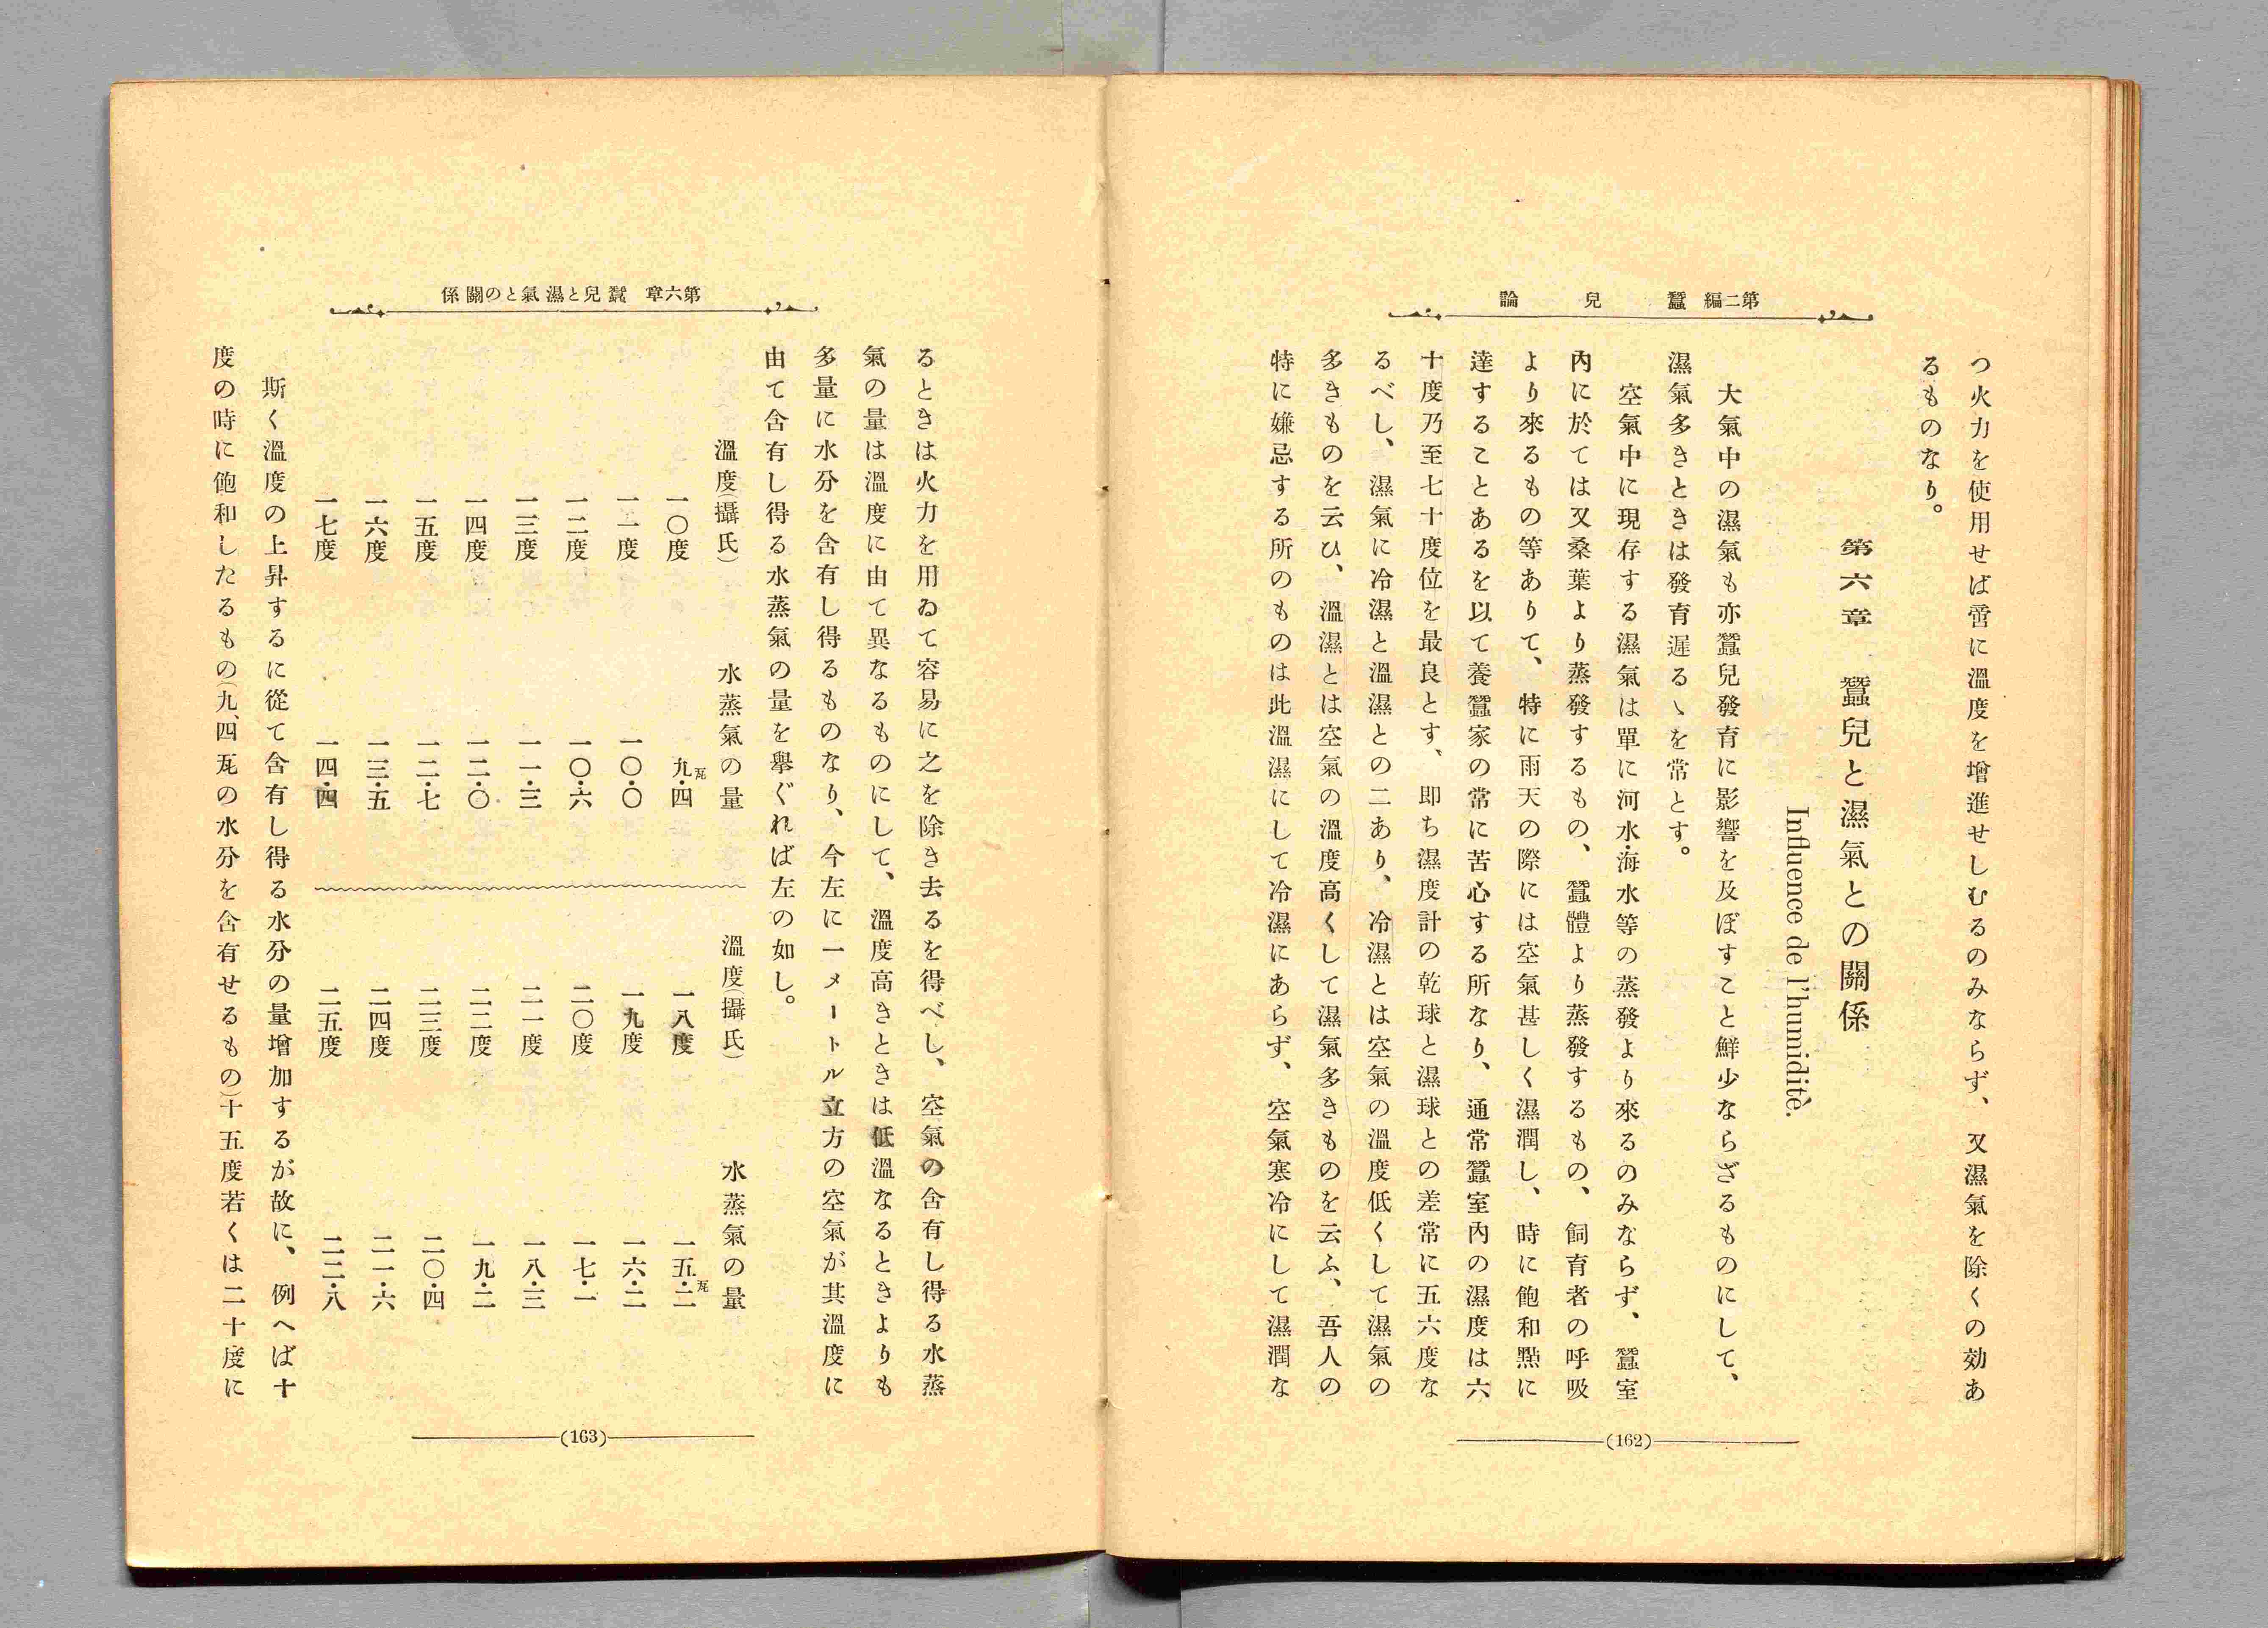 第二編　蠶　兒　論
つ火力を使用せば啻に溫度を增進せしむるのみならず、又濕氣を除くの効あ
るものなり。
第六章　蠶兒と濕氣との關係
Influence de l'humidité.
大氣中の濕氣も亦蠶兒發育に影響を及ぼすこと鮮少ならざるものにして、
濕氣多きときは發育遲るゝを常とす。
空氣中に現存する濕氣は單に河水・海水等の蒸發より來るのみならず、蠶室
內に於ては又桑葉より蒸發するもの、蠶體より蒸發するもの、飼育者の呼吸
より來るもの等ありて、特に雨天の際には空氣甚しく濕潤し、時に飽和點に
達することあるを以て養蠶家の常に苦心する所なり、通常蠶室內の濕度は六
十度乃至七十度位を最良とす、即ち濕度計の乾球と濕球との差常に五六度な
るべし、濕氣に冷濕と溫濕との二あり、冷濕とは空氣の溫度低くして濕氣の
多きものを云ひ、溫濕とは空氣の溫度高くして濕氣多きものを云ふ、吾人の
特に嫌忌する所のものは此溫濕にして冷濕にあらず、空氣寒冷にして濕潤な
(162)
第六章　蠶兒と濕氣との關係
るときは火力を用ゐて容易に之を除き去るを得べし、空氣の含有し得る水蒸
氣の量は溫度に由て異なるものにして、溫度高きときは低溫なるときよりも
多量に水分を含有し得るものなり、今左に一メートル立方の空氣が其溫度に
由て含有し得る水蒸氣の量を擧ぐれば左の如し。
溫度(攝氏)　水蒸氣の量　溫度(攝氏)　水蒸氣の量
一〇度　九・四瓦　一八度　一五・二瓦
一一度　一〇・〇　一九度　一六・二
一二度　一〇・六　二〇度　一七・一
一三度　一一・三　二一度　一八・三
一四度　一二・〇　二二度　一九・二
一五度　一二・七　二三度　二〇・四
一六度　一三・五　二四度　二一・六
一七度　一四・四　二五度　二二・八
斯く溫度の上昇するに從て含有し得る水分の量增加するが故に、例へば十
度の時に飽和したるもの(九、四瓦の水分を含有せるもの)十五度若くは二十度に
(163)